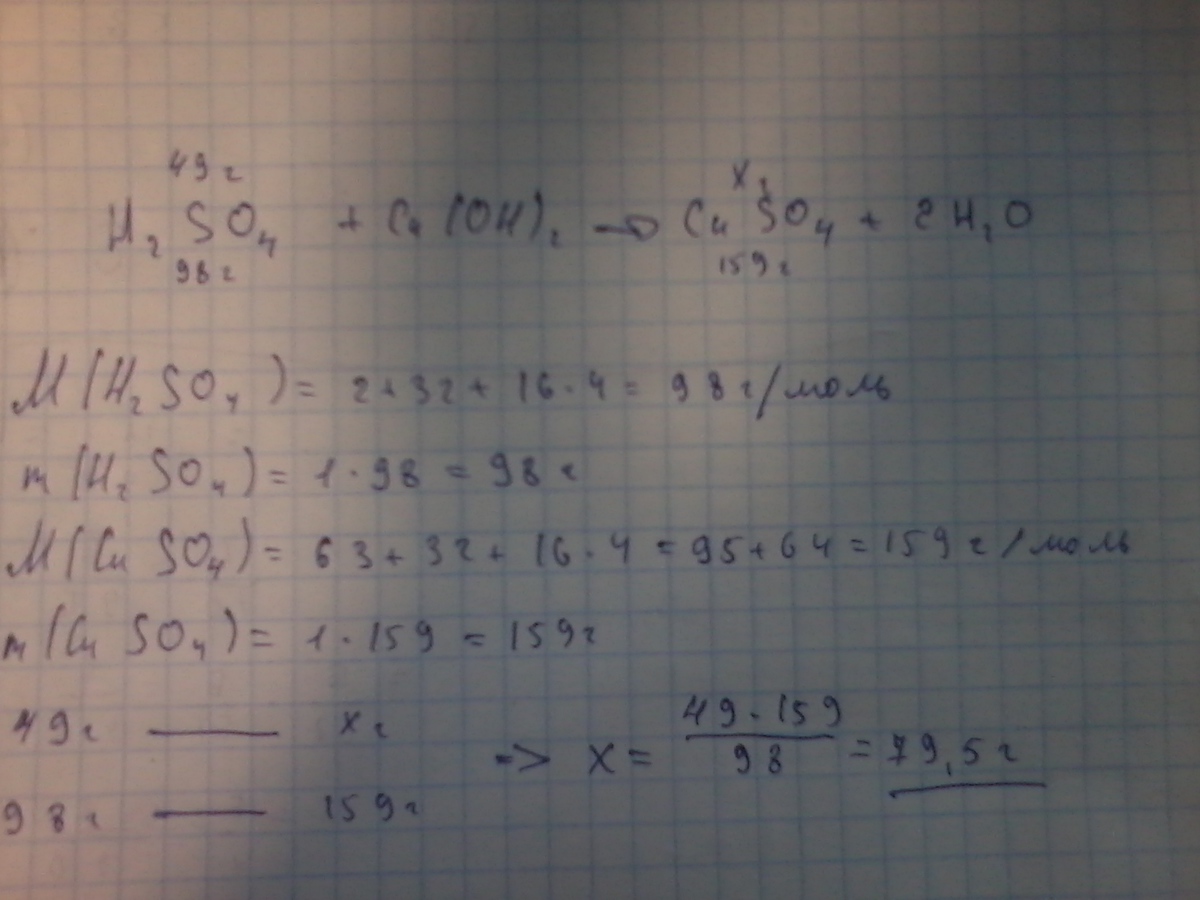 49 г х г
H₂SO₄ + Cu(OH)₂ → CuSO₄ + 2H₂O
98 г 159 г
M(H₂SO₄) = 2+32+16·4 = 98 г/моль
m(H₂SO₄) = 1·98 = 98 г
M(CuSO₄) = 63+32+16·4 = 95+64 = 159 г/моль
m(CuSO₄) = 1·159 = 159 г
49 г —— х г
98 г —— 159 г
=> x = 49·159 / 98 = 79,5 г